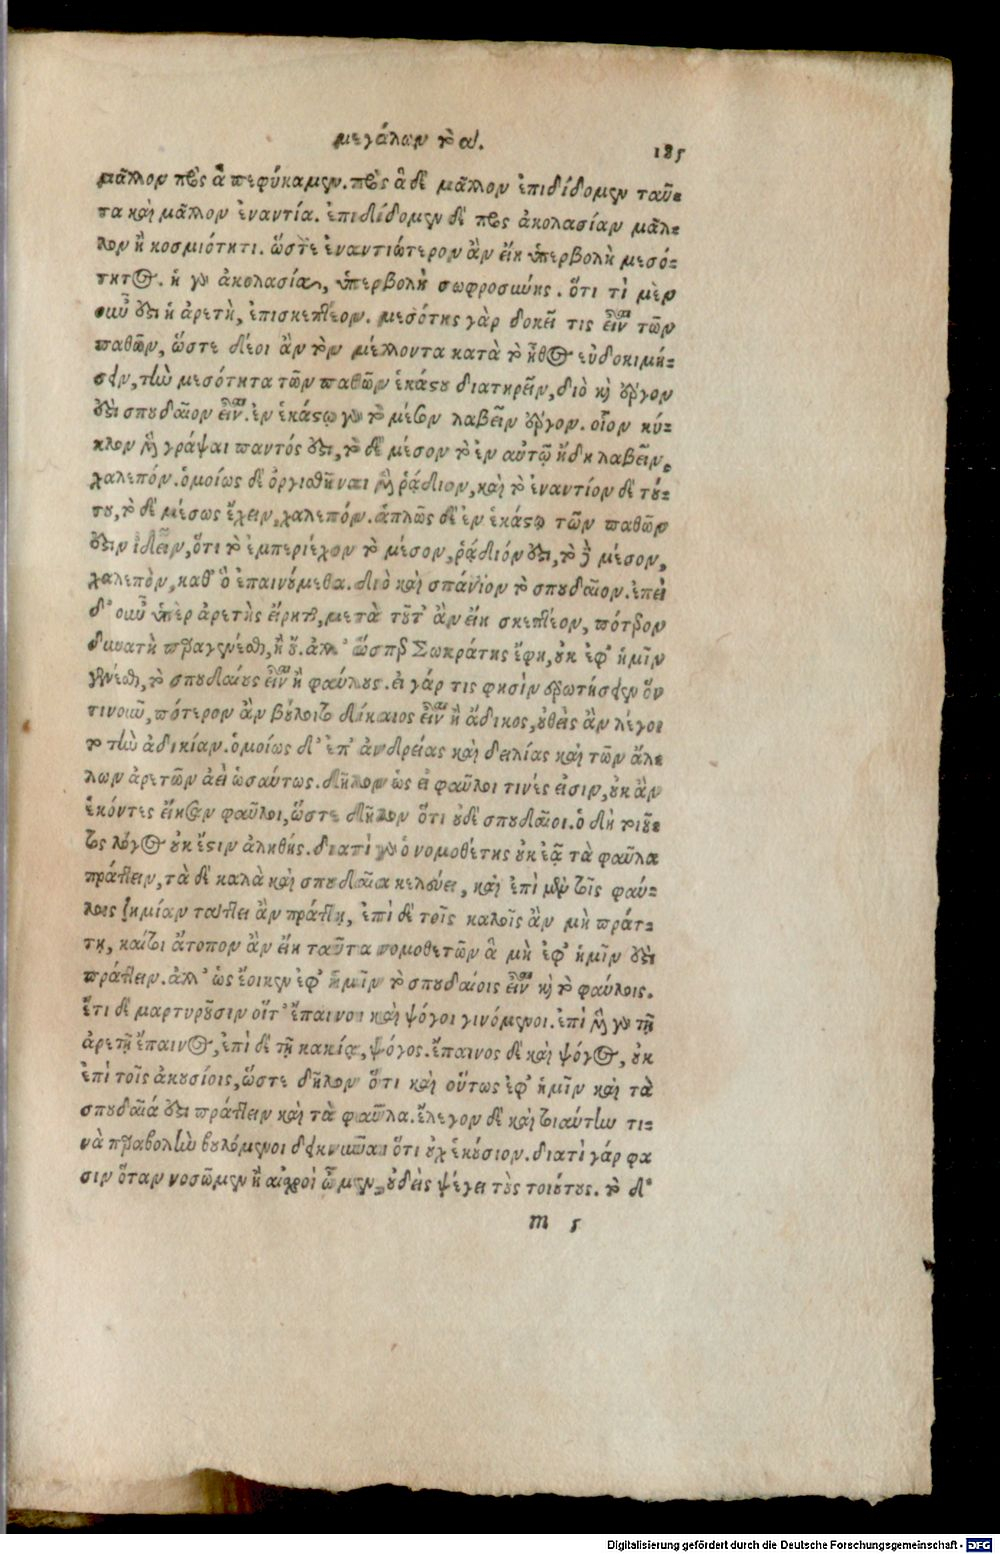 μεγάλων τὸ α΄. 185
μᾶλλον πρὸς ἃ πεφύκαμεν. πρὸς ἃ δὲ μᾶλλον ἐπιδίδομεν ταῦ-
τα καὶ μᾶλλον ἐναντία. ἐπιδίδομεν δὲ πρὸς ἀκολασίαν μᾶλ-
λον ἢ κοσμιότητι. ὥστε ἐναντιώτερον ἂν εἴη ὑπερβολὴ μεσό-
τητος. ἡ γὰρ ἀκολασία, ὑπερβολὴ σωφροσύνης. ὅτι τὶ μὲν
οὖν ἐστι ἡ ἀρετὴ, ἐπισκεπτέον. μεσότης γὰρ δοκεῖ τις εἶναι τῶν
παθῶν, ὥστε δέοι ἂν τὸν μέλλοντα κατὰ τὸ ἦθος εὐδοκιμή-
σειν, τὴν μεσότητα τῶν παθῶν ἑκάστου διατηρεῖν, διὸ καὶ ἔργον
ἐστὶ σπουδαῖον εἶναι. ἐν ἑκάστῳ γὰρ τὸ μέσον λαβεῖν ἔργον. οἷον κύ-
κλον μὲν γράψαι παντός ἐστι, τὸ δὲ μέσον τὸ ἐν αὐτῷ ἤδη λαβεῖν,
χαλεπόν. ὁμοίως δὲ ὀργισθῆναι μὲν ῥᾴδιον, καὶ τὸ ἐναντίον δὲ τού-
του, τὸ δὲ μέσως ἔχειν, χαλεπόν. ἁπλῶς δὲ ἐν ἑκάστῳ τῶν παθῶν
ἔστιν ἰδεῖν, ὅτι τὸ ἐμπεριέχον τὸ μέσον, ῥᾴδιόν ἐστι, τὸ δὲ μέσον,
χαλεπὸν, καθ' ὃ ἐπαινούμεθα. διὸ καὶ σπάνιον τὸ σπουδαῖον. ἐπεὶ
δ' οὖν ὑπὲρ ἀρετῆς εἴρηται, μετὰ τοῦτ' ἂν εἴη σκεπτέον, πότερον
δυνατὴ παραγενέσθαι, ἢ οὔ. ἀλλ' ὥσπερ Σωκράτης ἔφη, οὐκ ἐφ' ἡμῖν
γενέσθαι, τὸ σπουδαίους εἶναι ἢ φαύλους. εἰ γάρ τις φησὶν ἐρωτήσειεν ὅν
τινοῦν, πότερον ἂν βούλοιτο δίκαιος εἶναι ἢ ἄδικος, οὐθεὶς ἂν λέγοι
τὸ τὴν ἀδικίαν. ὁμοίως δ' ἐπ' ἀνδρείας καὶ δειλίας καὶ τῶν ἄλ-
λων ἀρετῶν ἀεὶ ὡσαύτως. δῆλον ὡς εἰ φαῦλοι τινές εἰσιν, οὐκ ἂν
ἑκόντες εἴησαν φαῦλοι, ὥστε δῆλον ὅτι οὐδὲ σπουδαῖοι. ὁ δὴ τοιοῦ-
τος λόγος οὐκ ἔστιν ἀληθής. διατὶ γὰρ ὁ νομοθέτης οὐκ ἐᾷ τὰ φαῦλα
πράττειν, τὰ δὲ καλὰ καὶ σπουδαῖα κελεύει, καὶ ἐπὶ μὲν τοῖς φαύ-
λοις ζημίαν τάττει ἂν πράττῃ, ἐπὶ δὲ τοῖς καλοῖς ἂν μὴ πράτ-
τῃ, καίτοι ἄτοπον ἂν εἴη ταῦτα νομοθετῶν ἃ μὴ ἐφ' ἡμῖν ἐστι
πράττειν. ἀλλ' ὡς ἔοικεν ἐφ' ἡμῖν τὸ σπουδαίοις εἶναι καὶ τὸ φαύλοις.
ἔτι δὲ μαρτυροῦσιν οἵτ' ἔπαινοι καὶ ψόγοι γινόμενοι. ἐπὶ μὲν γὰρ τῇ
ἀρετῇ ἔπαινος, ἐπὶ δὲ τῇ κακίᾳ, ψόγος. ἔπαινος δὲ καὶ ψόγος, οὐκ
ἐπὶ τοῖς ἀκουσίοις, ὥστε δῆλον ὅτι καὶ οὕτως ἐφ' ἡμῖν καὶ τὰ
σπουδαῖά ἐστι πράττειν καὶ τὰ φαῦλα. ἔλεγον δὲ καὶ τοιαύτην τι-
νὰ παραβολὴν βουλόμενοι δεικνύναι ὅτι οὐχ ἑκούσιον. διατὶ γάρ φα
σιν ὅταν νοσῶμεν ἢ αἰσχροὶ ὦμεν, οὐδεὶς ψέγει τοὺς τοιούτους. τὸ δ'
m 5
Digitalisierung gefördert durch die Deutsche Forschungsgemeinschaft - DFG